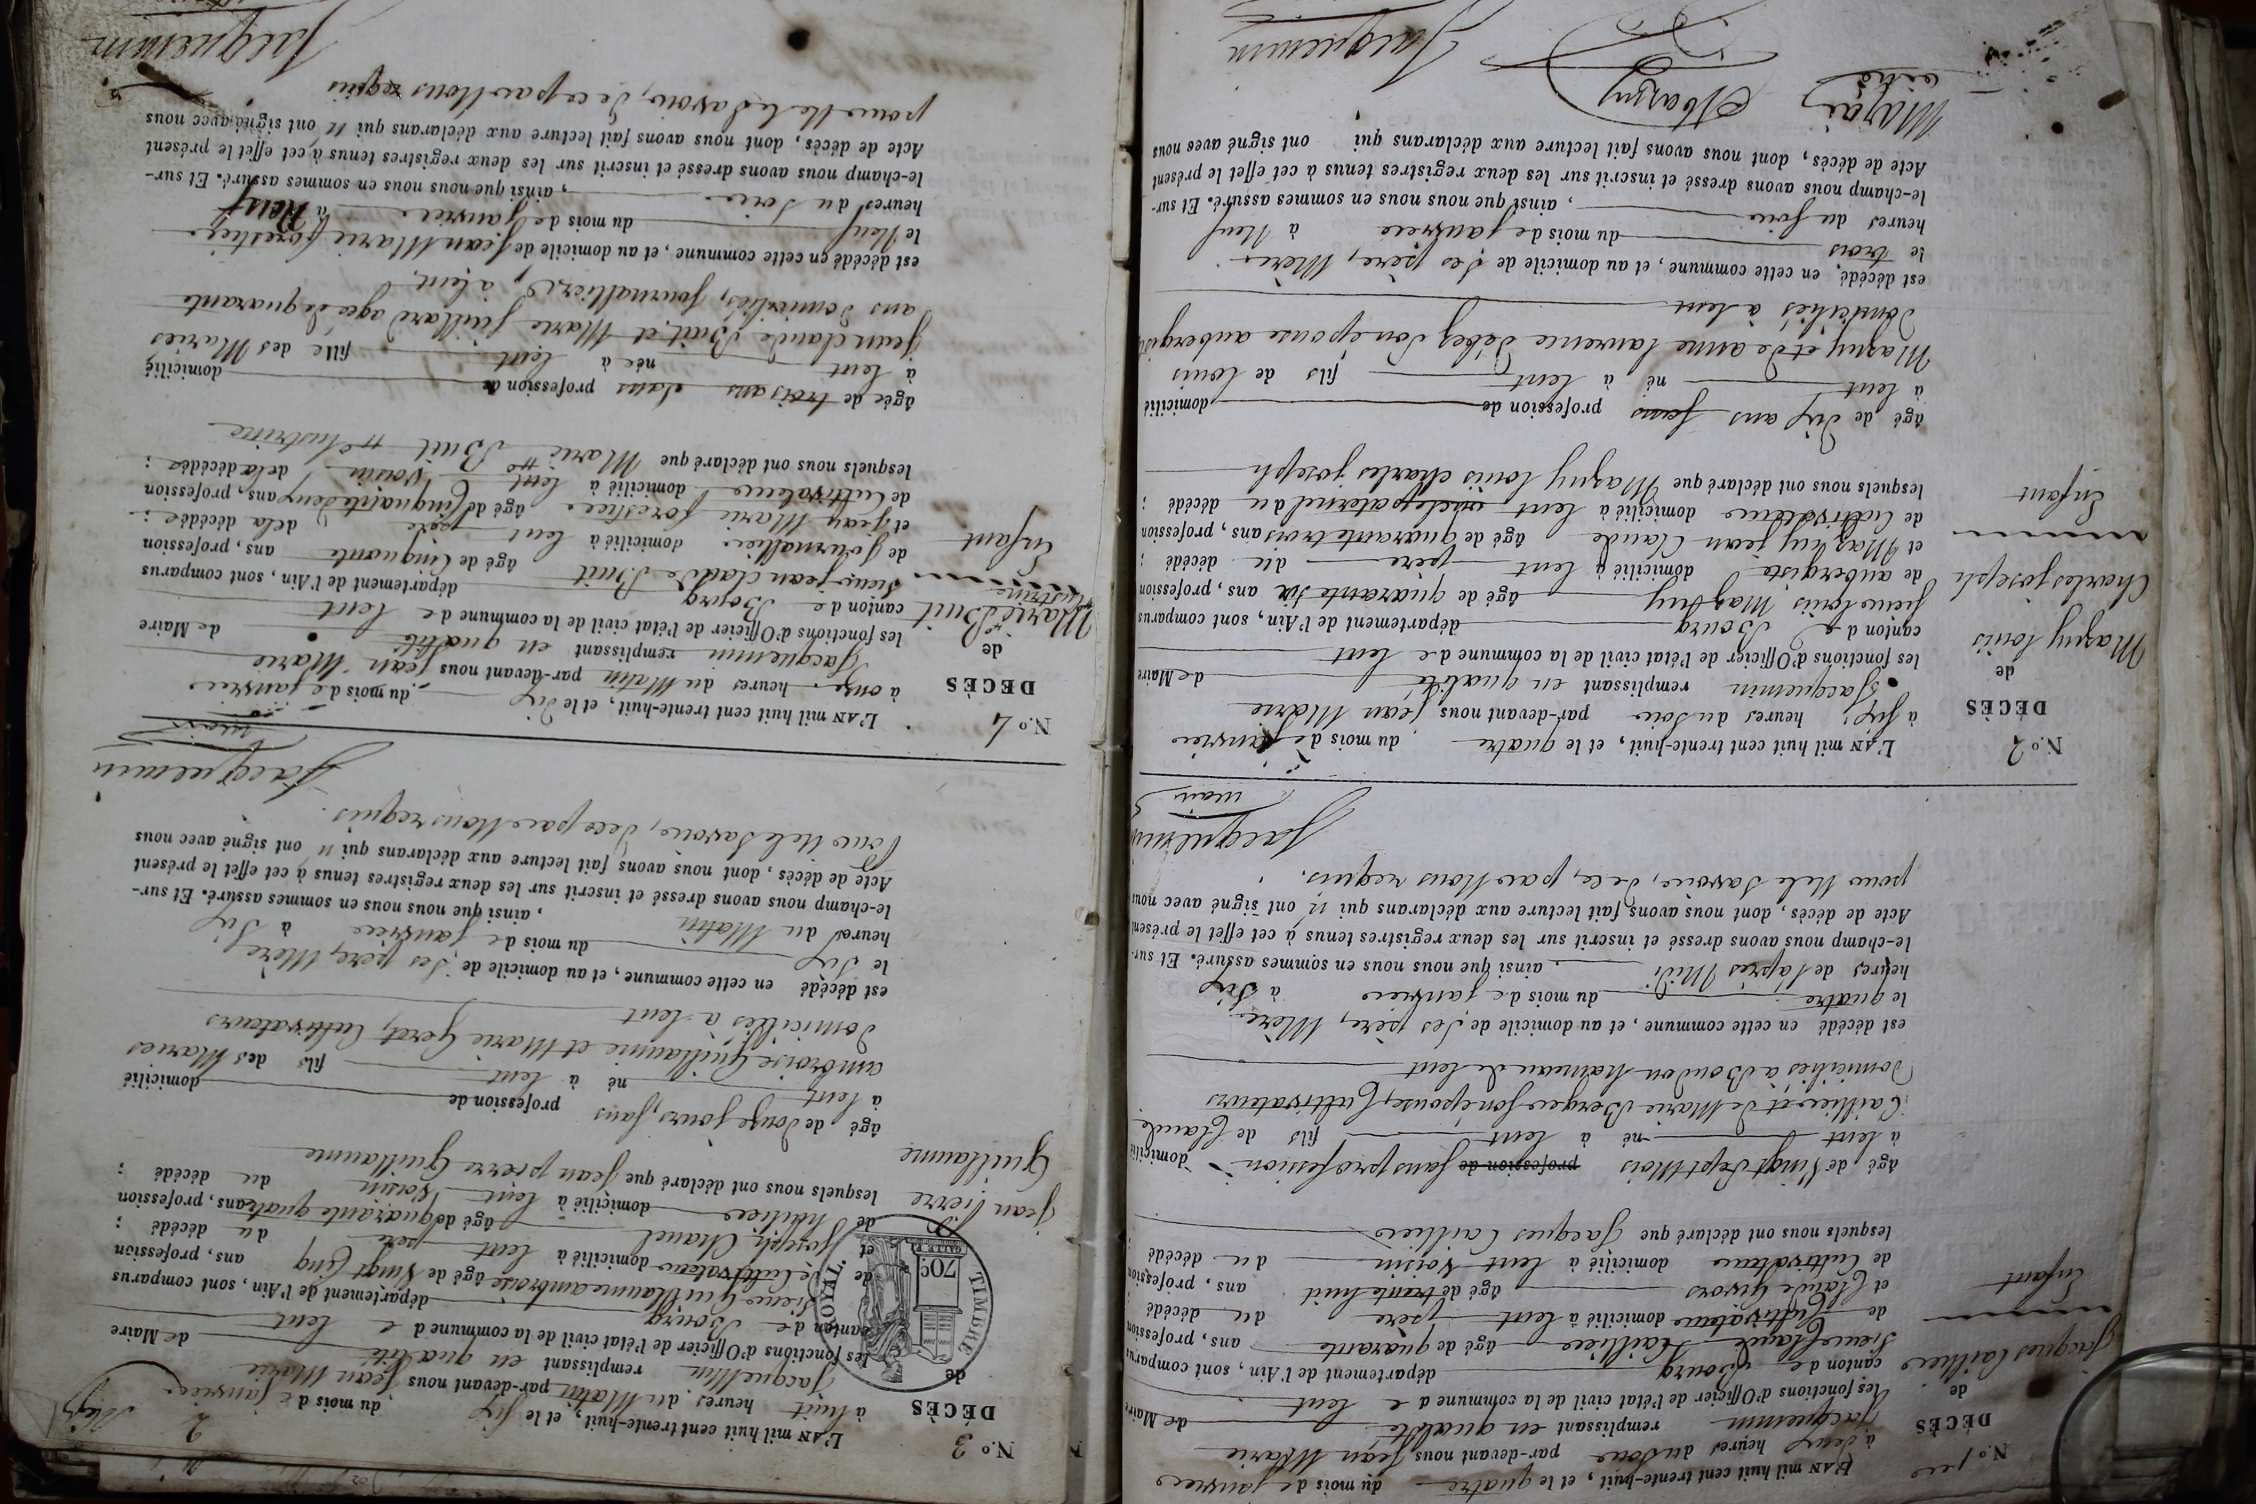 N.º 1er
DÉCÈS
de
Jacques Caillier
Enfant
L'AN mil huit cent trente-huit, et le quatre du mois de janvier
à deux heures du soir par-devant nous Jean Marie
Jacquemin remplissant en qualité de Maire
les fonctions d'Officier de l'état civil de la commune de Lent
canton de Bourg département de l'Ain, sont comparus
Sieur Claude Caillier âgé de quarante ans, profession
de Cultivateur domicilié à Lent père du décédé ;
et Claude Givors âgé de trente huit ans, profession
de Cultivateur domicilié à Lent voisin du décédé ;
lesquels nous ont déclaré que Jacques Caillier
âgé de Vingt Sept Mois profession de Sans profession domicilié
à Lent né à Lent fils de Claude
Caillier et de Marie Berger son épouse, Cultivateurs
Domiciliés à Boudon hameau de Lent
est décédé en cette commune, et au domicile de ses père, Mère
le quatre du mois de janvier à Six
heures de l'après Midi, ainsi que nous nous en sommes assuré. Et sur-
le-champ nous avons dressé et inscrit sur les deux registres tenus à cet effet le présent
Acte de décès, dont nous avons fait lecture aux déclarans qui n' ont signé avec nous
pour Ne le Savoir, de ce, par Nous requis.
Jacquemin
maire
N.º 2
DÉCÈS
de
Mazuy Louis
Charles Joseph
Enfant
L'AN mil huit cent trente-huit, et le quatre du mois de janvier
à Six heures du soir par-devant nous Jean Marie
Jacquemin remplissant en qualité de Maire
les fonctions d'Officier de l'état civil de la commune de Lent
canton de Bourg département de l'Ain, sont comparus
Sieur Louis Mazuy âgé de quarante six ans, profession
de aubergiste domicilié à Lent père du décédé ;
et Mazuy Jean Claude âgé de quarante trois ans, profession
de Cultivateur domicilié à Lent oncle paternel du décédé ;
lesquels nous ont déclaré que Mazuy Louis Charles Joseph
âgé de Dix ans Sans profession de domicilié
à Lent né à Lent fils de Louis
Mazuy et de anne Laurence Débez Son épouse aubergistes
Domiciliés à Lent
est décédé, en cette commune, et au domicile de Ses père, Mère
le trois du mois de janvier à Neuf
heures du soir, ainsi que nous nous en sommes assuré. Et sur-
le-champ nous avons dressé et inscrit sur les deux registres tenus à cet effet le présent
Acte de décès, dont nous avons fait lecture aux déclarans qui ont signé avec nous
Mazuy
Jacquemin
N.º 3
DÉCÈS
de
Jean Pierre
Guillaume
TIMBRE ROYAL
70c
L'AN mil huit cent trente-huit, et le Six du mois de janvier
à huit heures du Matin par-devant nous Jean Marie
Jacquemin remplissant en qualité de Maire
les fonctions d'Officier de l'état civil de la commune de Lent
canton de Bourg département de l'Ain, sont comparus
Sieur Guillaume ambroise âgé de Vingt Cinq ans, profession
de Cultivateur domicilié à Lent père du décédé ;
et Joseph Chanel âgé de quarante quatre ans, profession
de domicilié à Lent voisin du décédé ;
lesquels nous ont déclaré que Jean pierre Guillaume
âgé de Douze Jours, Sans profession de domicilié
à Lent né à Lent fils des Mariés
ambroise Guillaume et Marie Gerot, Cultivateurs
Domiciliés à Lent
est décédé en cette commune, et au domicile de Ses père, Mère
le Six du mois de janvier à Six
heures du Matin, ainsi que nous nous en sommes assuré. Et sur-
le-champ nous avons dressé et inscrit sur les deux registres tenus à cet effet le présent
Acte de décès, dont nous avons fait lecture aux déclarans qui n' ont signé avec nous
Pour Ne le Savoir, de ce par Nous requis.
Jacquemin
maire
N.º 4
DÉCÈS
de
Marie Buit
Enfant
L'AN mil huit cent trente-huit, et le Dix du mois de janvier
à onze heures du Matin par-devant nous Jean Marie
Jacquemin remplissant en qualité de Maire
les fonctions d'Officier de l'état civil de la commune de Lent
canton de Bourg département de l'Ain, sont comparus
Sieur Jean Claude Buit âgé de Cinquante ans, profession
de Journallier domicilié à Lent père de la décédée ;
et Jean Marie forestier âgé de Cinquante Deux ans, profession
de Cultivateur domicilié à Lent voisin de la décédée ;
lesquels nous ont déclaré que Marie Buit
âgée de trois ans Sans profession de domicilié
à Lent née à Lent fille des Mariés
Jean Claude Buit et Marie Juillard agés de quarante
ans Domiciliés, Journalliers, à Lent,
est décédé en cette commune, et au domicile de Jean Marie forestier
le Neuf du mois de janvier à Neuf
heures du Soir, ainsi que nous nous en sommes assuré. Et sur-
le-champ nous avons dressé et inscrit sur les deux registres tenus à cet effet le présent
Acte de décès, dont nous avons fait lecture aux déclarans qui n' ont signé avec nous
pour Ne le Savoir, de ce par Nous requis
Jacquemin